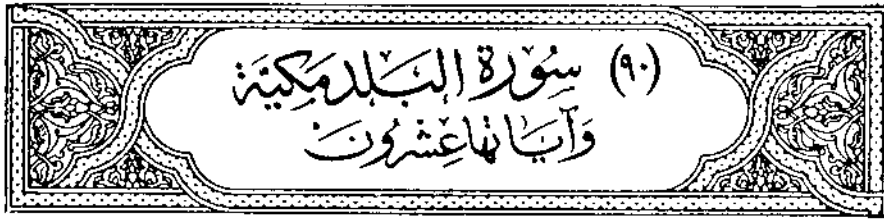 (٩٠) سُورَة البَلَدمَكِيَّة
وَآيَاتهَاعِشرُونَ